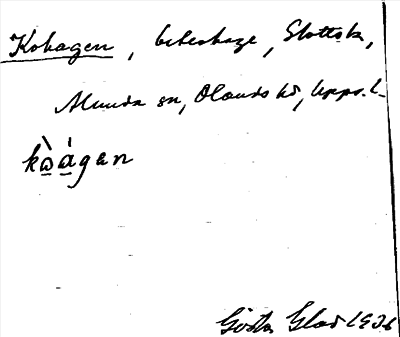 Kohagen, beteshage, Slottsk,
Alunda sn, Olands hd, Upps. l.
kɷ̀ágen
Gösta Glad 1936